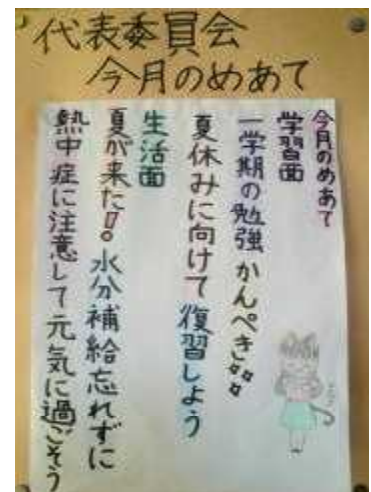 代表委員会
今月のめあて
今月のめあて
学習面
一学期の勉強かんぺき!!
夏休みに向けて復習しよう
生活面
夏が来た!!水分補給忘れずに
熱中症に注意して元気に過ごそう